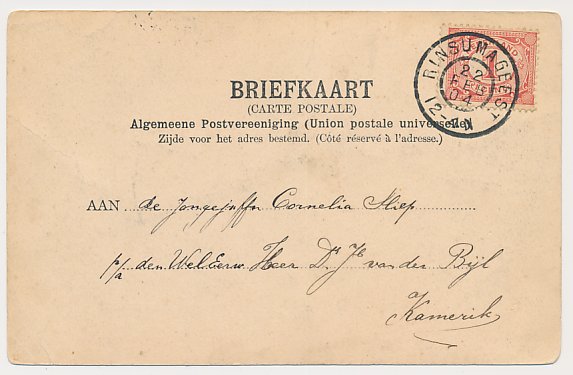 RINSUMAGEEST
22
FEB
04
12-4N
1
BRIEFKAART
(CARTE POSTALE)
Algemeene Postvereeniging (Union postale universelle)
Zijde voor het adres bestemd. (Côté réservé à l'adresse.)
AAN de Jongejuffr Cornelia
p/a den Wel Eerw. Heer Ds H van der Bijl
Kamerik